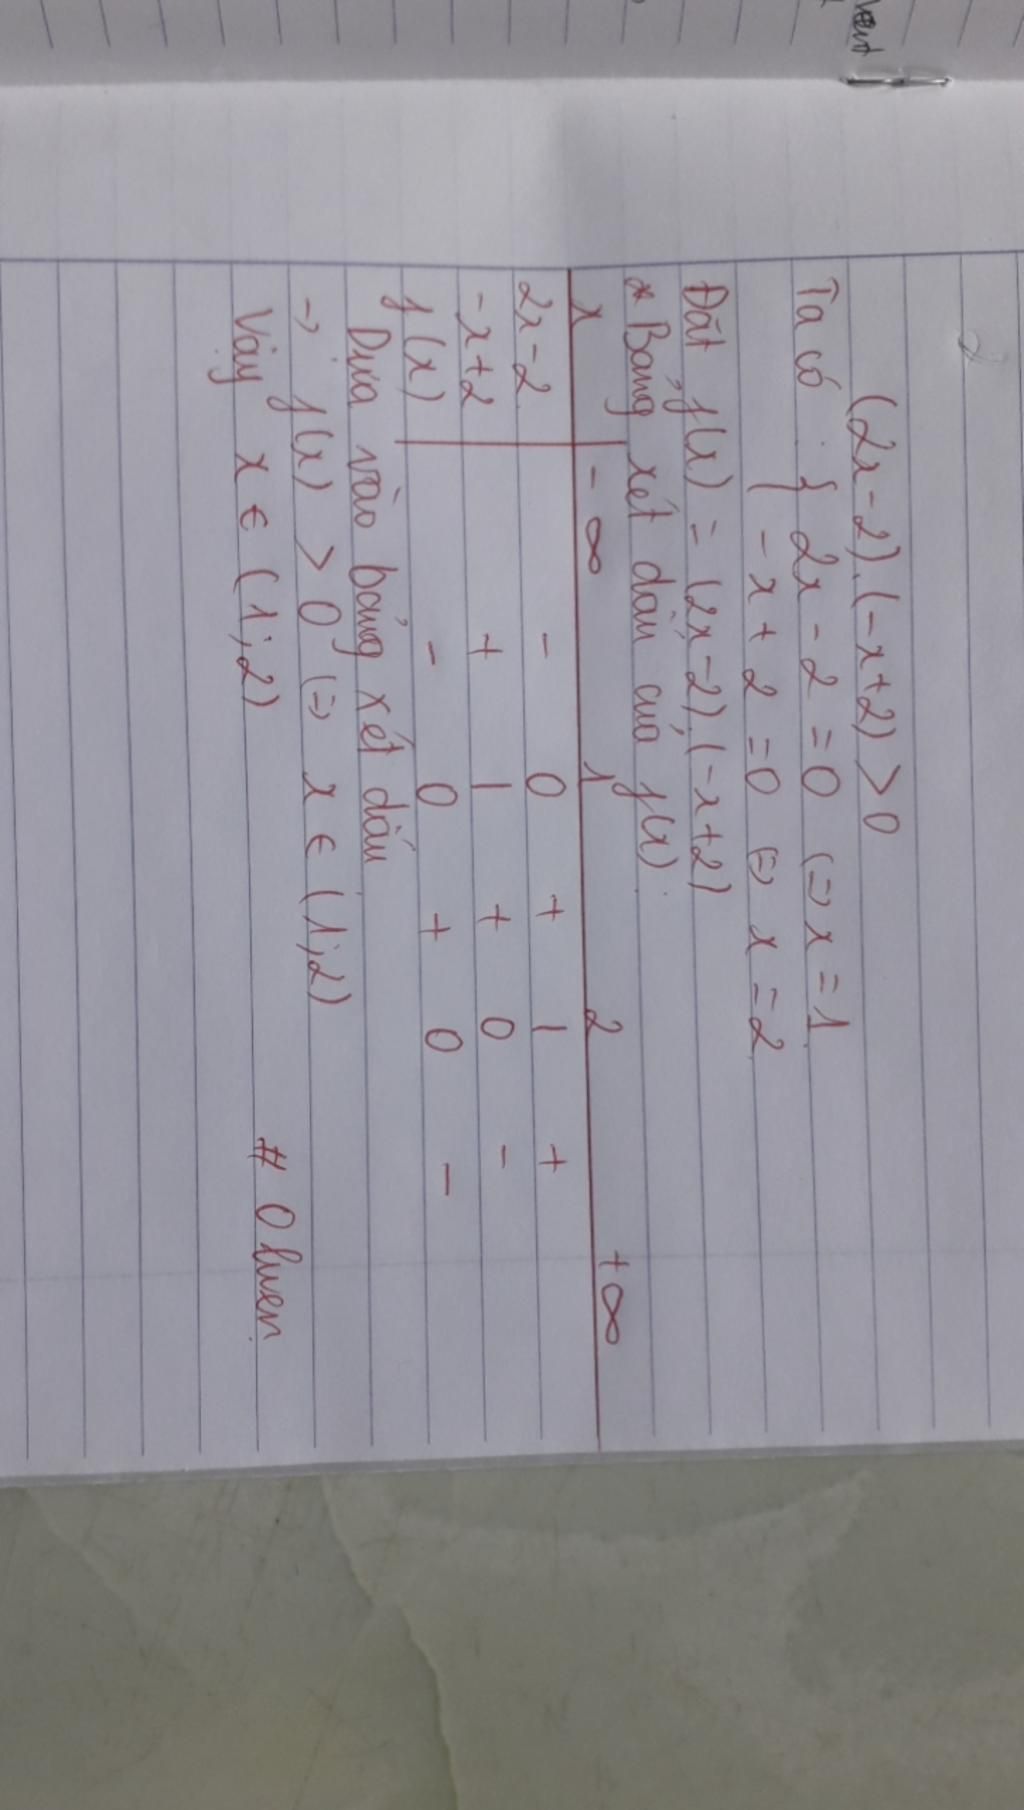 (2x-2).(-x+2) > 0
Ta có : { 2x - 2 = 0 (=) x = 1
{ -x + 2 = 0 (=) x = 2
Đặt f(x) = (2x-2).(-x+2)
* Bảng xét dấu của f(x).
x -∞ 1 2 +∞
2x-2 - 0 + | +
-x+2 + | + 0 -
f(x) - 0 + 0 -
Dựa vào bảng xét dấu
-> f(x) > 0 (=) x ∈ (1;2)
Vậy x ∈ (1;2)
# 0 luven